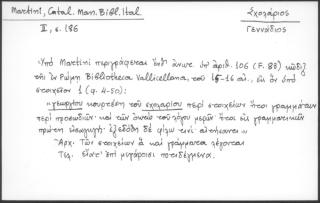 Martini, Catal. Man. Bibl. Ital.
II, σ. 186
Σχολάριος
Γεννάδιος
Ὑπὸ Martini περιγράφεται ὑπ' ἀριθ. 106 (F. 88) κῶδιξ
τῆς ἐν Ρώμῃ Bibliotheca Vallicellana, τοῦ 15-16 αἰ., ἐν ᾧ ὑπὸ
στοιχεῖον 1 (φ. 4-50):
"γεωργίου κουρτέση τοῦ σχολαρίου περὶ στοιχείων ἤτοι γραμμάτων
περὶ προσωδιῶν καὶ τῶν ὀκτὼ τοῦ λόγου μερῶν ἤτοι εἰς γραμματικὴν
πρώτη εἰσαγωγή· ἐξεδόθη δὲ φίλῳ τινὶ αἰτήσαντι"
Ἀρχ. Τῶν στοιχείων ἃ καὶ γράμματα λέγονται
Τελ.